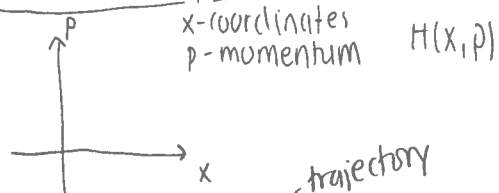 p
x-coordinates
p-momentum
H(x,p)
x
trajectory